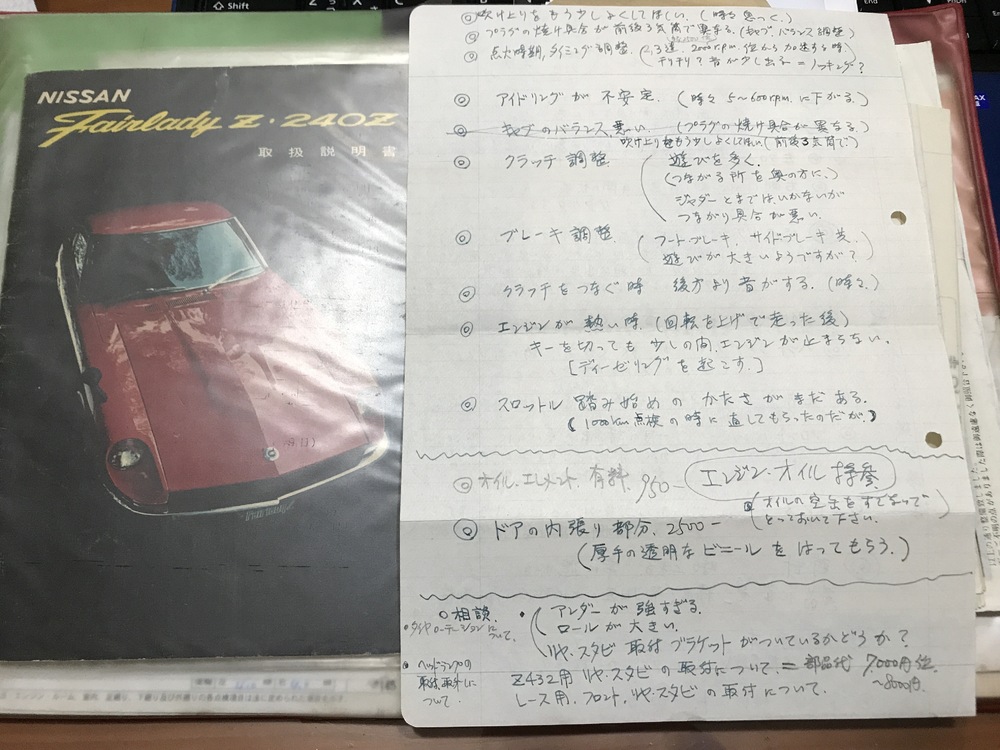 Shift
NISSAN
Fairlady Z・240Z
取扱説明書
◎ 吹け上りをもう少しよくしてほしい.(時々息つく.)
◎ プラグの焼け具合が前後3気筒で異なる.(キャブ.バランス調整)
◎ 点火時期,タイミング調整 (2,3速.2000rpm.位から加速する時)
チリチリ?音が少し出る=ノッキング?
◎ アイドリングが不安定.(時々5〜600rpm.に下がる.)
◎ キャブのバランス悪い.(プラグの焼け具合が異なる.)
吹け上りをもう少しよくしてほしい(前後3気筒で.)
◎ クラッチ調整 遊びを多く.
(つながる所を奥の方に.)
ジャダーとまではいかないが
つながり具合が悪い.
◎ ブレーキ調整.(フートブレーキ.サイドブレーキ共.)
遊びが大きいようですが?
◎ クラッチをつなぐ時 後方より音がする.(時々.)
◎ エンジンが熱い時(回転を上げて走った後)
キーを切っても少しの間.エンジンが止まらない.
[ディーゼリングを起こす.]
◎ スロットル踏み始めのかたさがまだある.
(1000km点検の時に直してもらったのだが.)
◎ オイル.エレメント.有料.950-
エンジン・オイル持参
(オイルの空缶をすてないで
とっておいて下さい.)
◎ ドアの内張り部分.2500-
(厚手の透明なビニールをはってもらう.)
○相談.
・アンダーが強すぎる.
ロールが大きい.
リヤ.スタビ取付ブラケットがついているかどうか?
Z432用リヤ.スタビの取付について.=部品代7000円位
〜8000円.
レース用.フロント,リヤ.スタビの取付について.
・タイヤローテーションについて.
・ヘッドランプの
取付,取外しに
ついて.